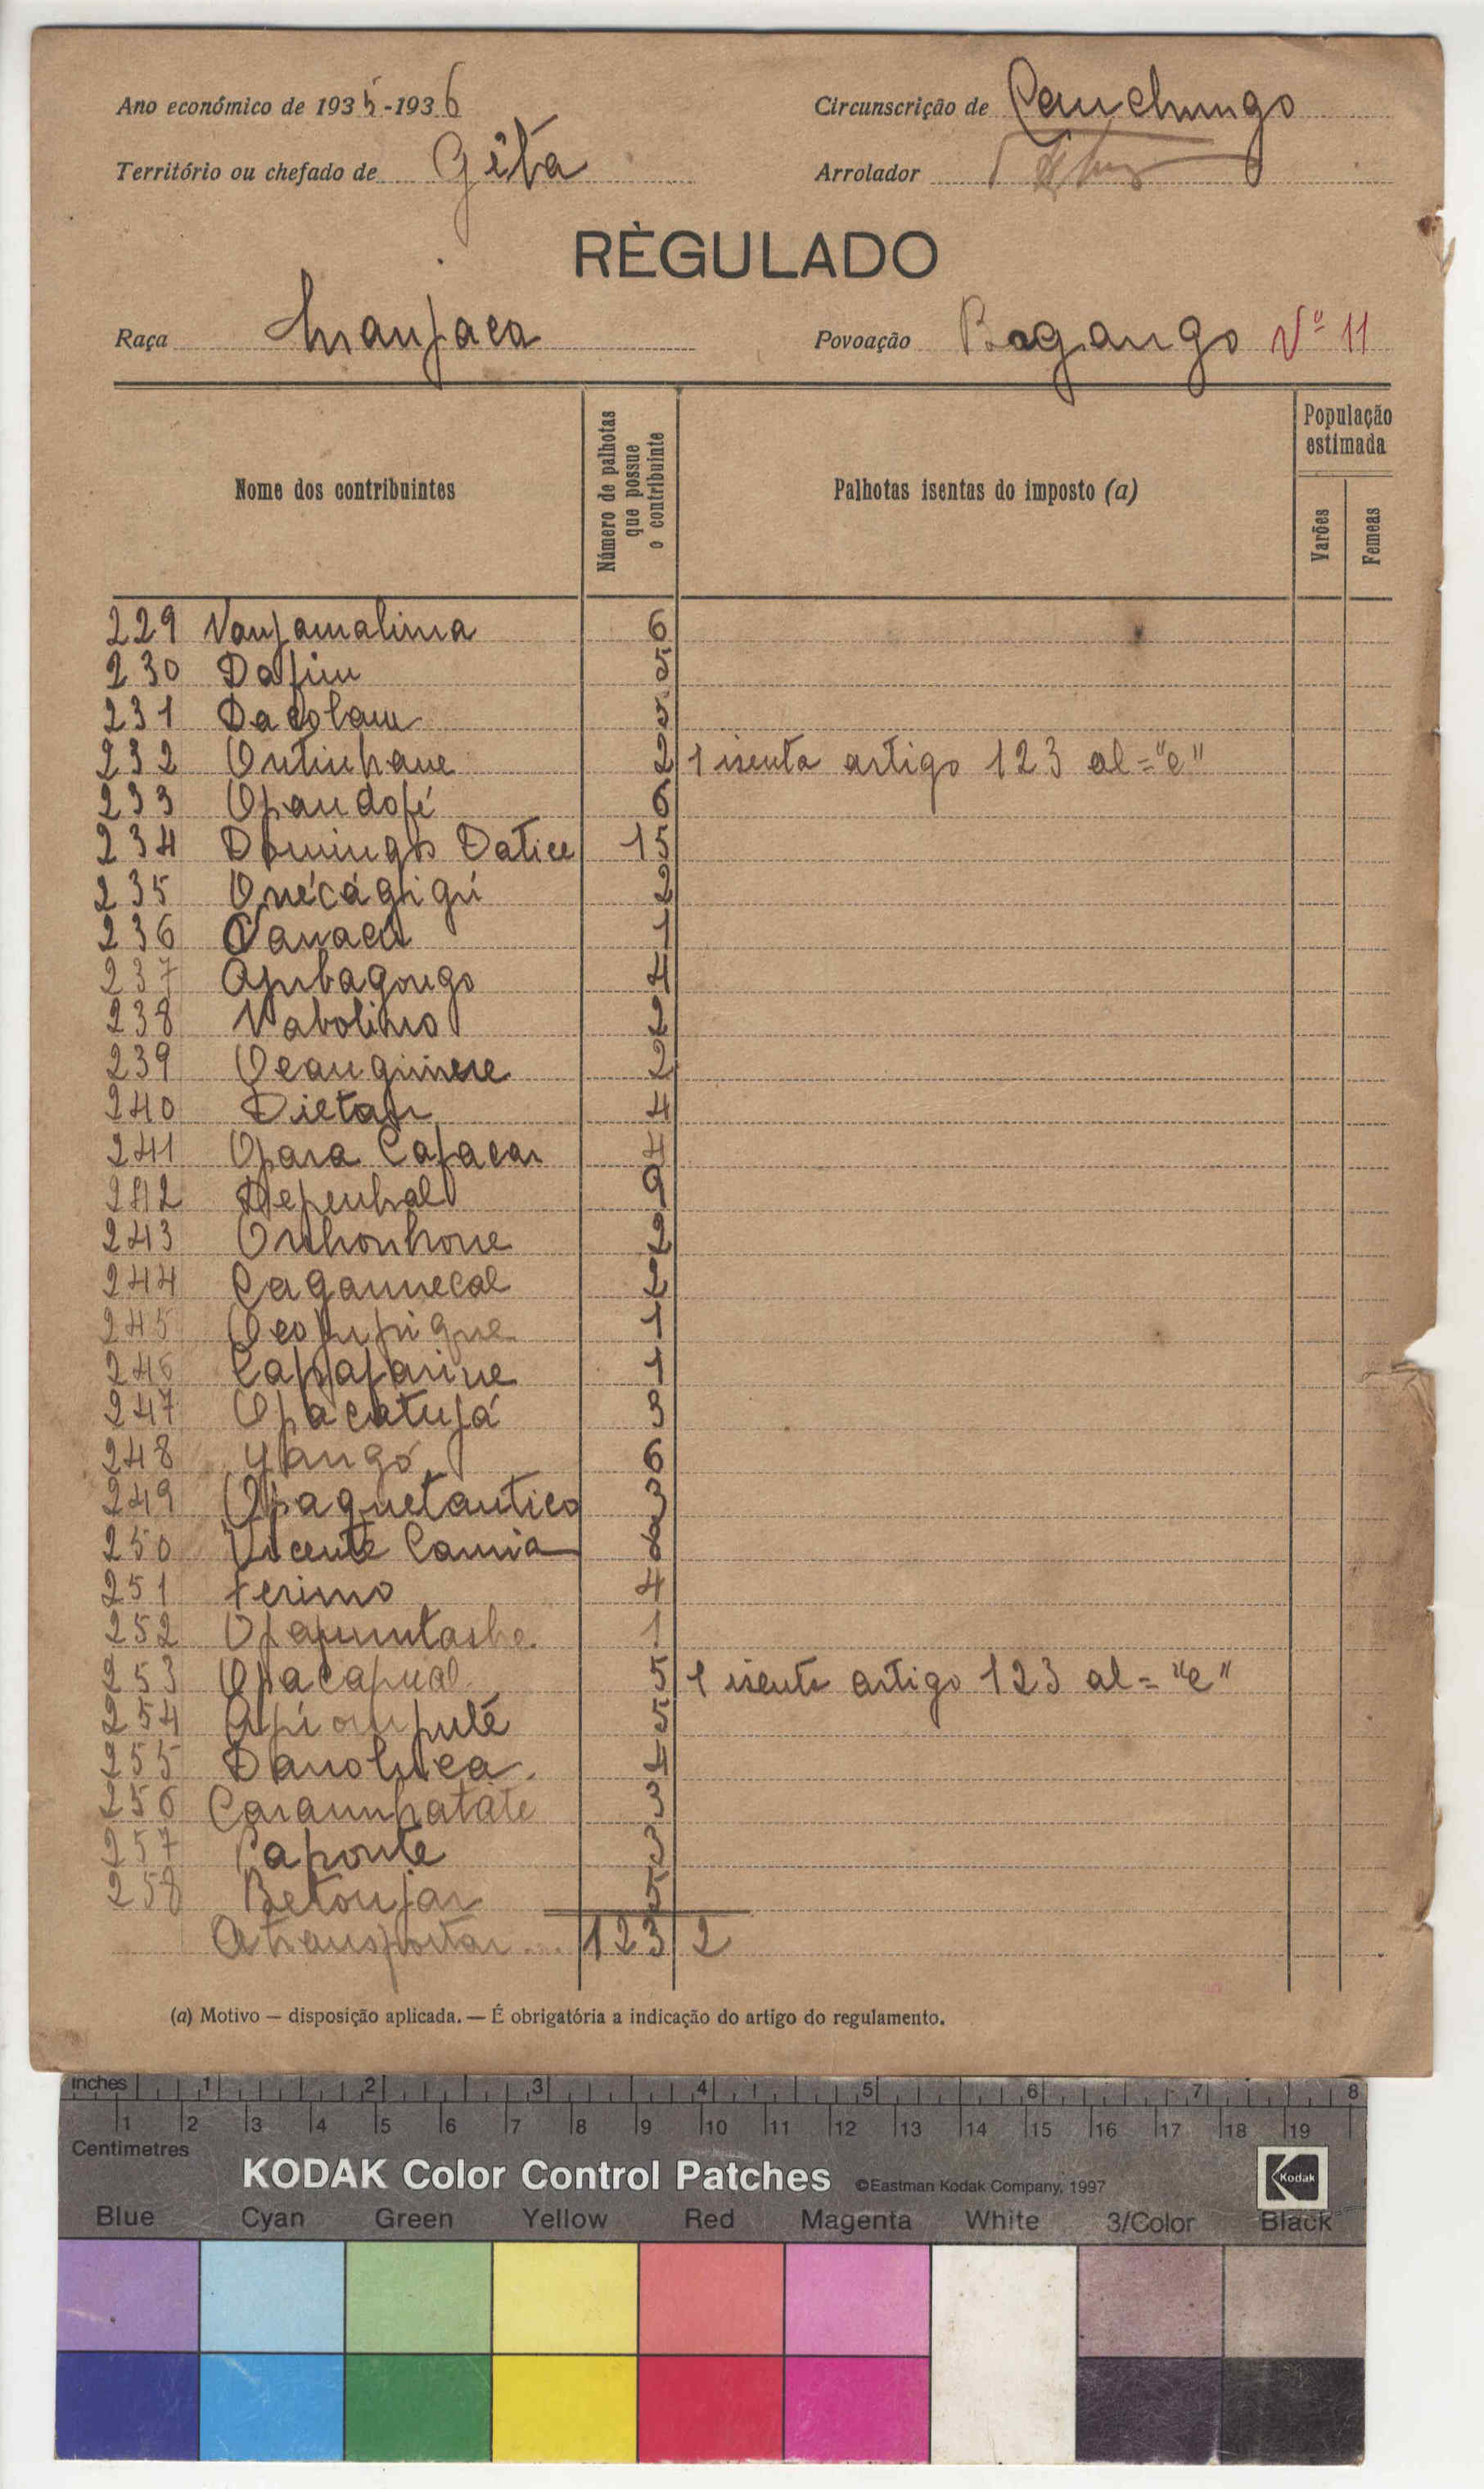 Ano económico de 1935-1936
Circunscrição de Canchungo
Território ou chefado de Gêta
Arrolador
RÈGULADO
Raça Manjaca
Povoação Bogango Nº 11
Nome dos contribuintes
Número de palhotas que possue o contribuinte
Palhotas isentas do imposto (a)
População estimada
Varões
Femeas
229 Nanjamalima 6
230 Dafim 5
231 5
232 2 1 isenta artigo 123 al= "e"
233 Opandofé 6
234 Domingos Datice 15
235 Onécágigú 2
236 1
237 Apibagongo 4
238 Nabolimo 2
239 2
240 Dietan 4
241 Opara Cafacan 4
242 Depenhal 9
243 Onhonhone 2
244 Cagamnecal 2
245 1
246 Capafarine 1
247 Opacatujá 3
248 Yangó 6
249 Opaquetantico 3
250 Vicente Camia 2
251 Ferimo 4
252 1
253 Opacapual 5 1 isenta artigo 123 al= "e"
254 5
255 4
256 3
257 Caponte 3
258 Betonjan 5
A transportar... 123 2
(a) Motivo — disposição aplicada. — É obrigatória a indicação do artigo do regulamento.
inches 1 2 3 4 5 6 7 8
1 2 3 4 5 6 7 8 9 10 11 12 13 14 15 16 17 18 19
Centimetres
KODAK Color Control Patches ©Eastman Kodak Company, 1997 Kodak
Blue Cyan Green Yellow Red Magenta White 3/Color Black